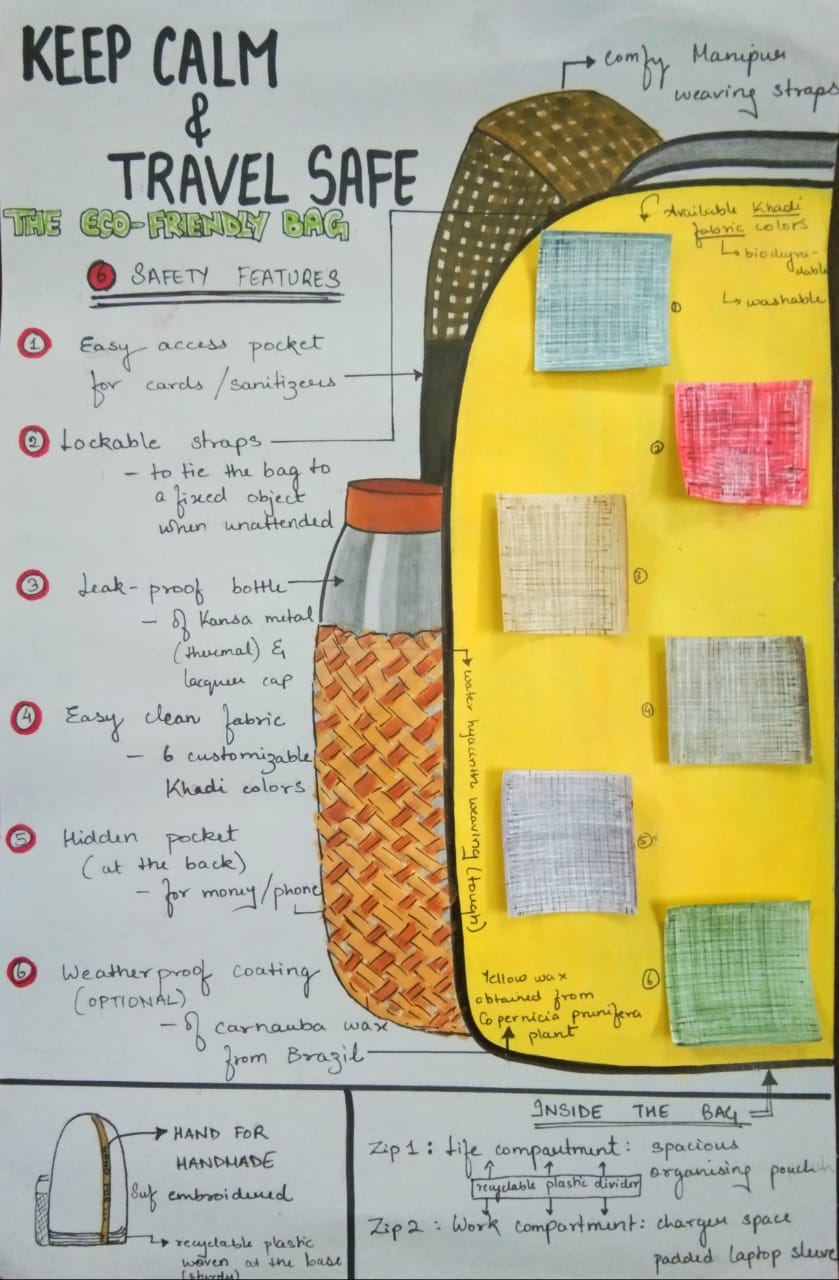 KEEP CALM
&
TRAVEL SAFE
THE ECO-FRIENDLY BAG
6 SAFETY FEATURES
1 Easy access pocket
for cards/sanitizers
2 Lockable straps
- to tie the bag to
a fixed object
when unattended
3 Leak-proof bottle
- of Kansa metal
(thermal) &
lacquer cap
4 Easy clean fabric
- 6 customizable
Khadi colors
5 Hidden pocket
(at the back)
- for money/phone
6 Weatherproof coating
(OPTIONAL)
- of carnauba wax
from Brazil
comfy Manipur
weaving straps
Available Khadi
fabric colors
biodegra-
dable
washable
1
2
3
4
5
6
water hyacinth weaving (tough)
Yellow wax
obtained from
Copernicia prunifera
plant
HAND FOR
HANDMADE
embroidered
recyclable plastic
woven at the base
(sturdy)
INSIDE THE BAG
Zip 1: Life compartment: spacious
organising pouch
recyclable plastic divider
Zip 2: Work compartment: charger space
padded laptop sleeve